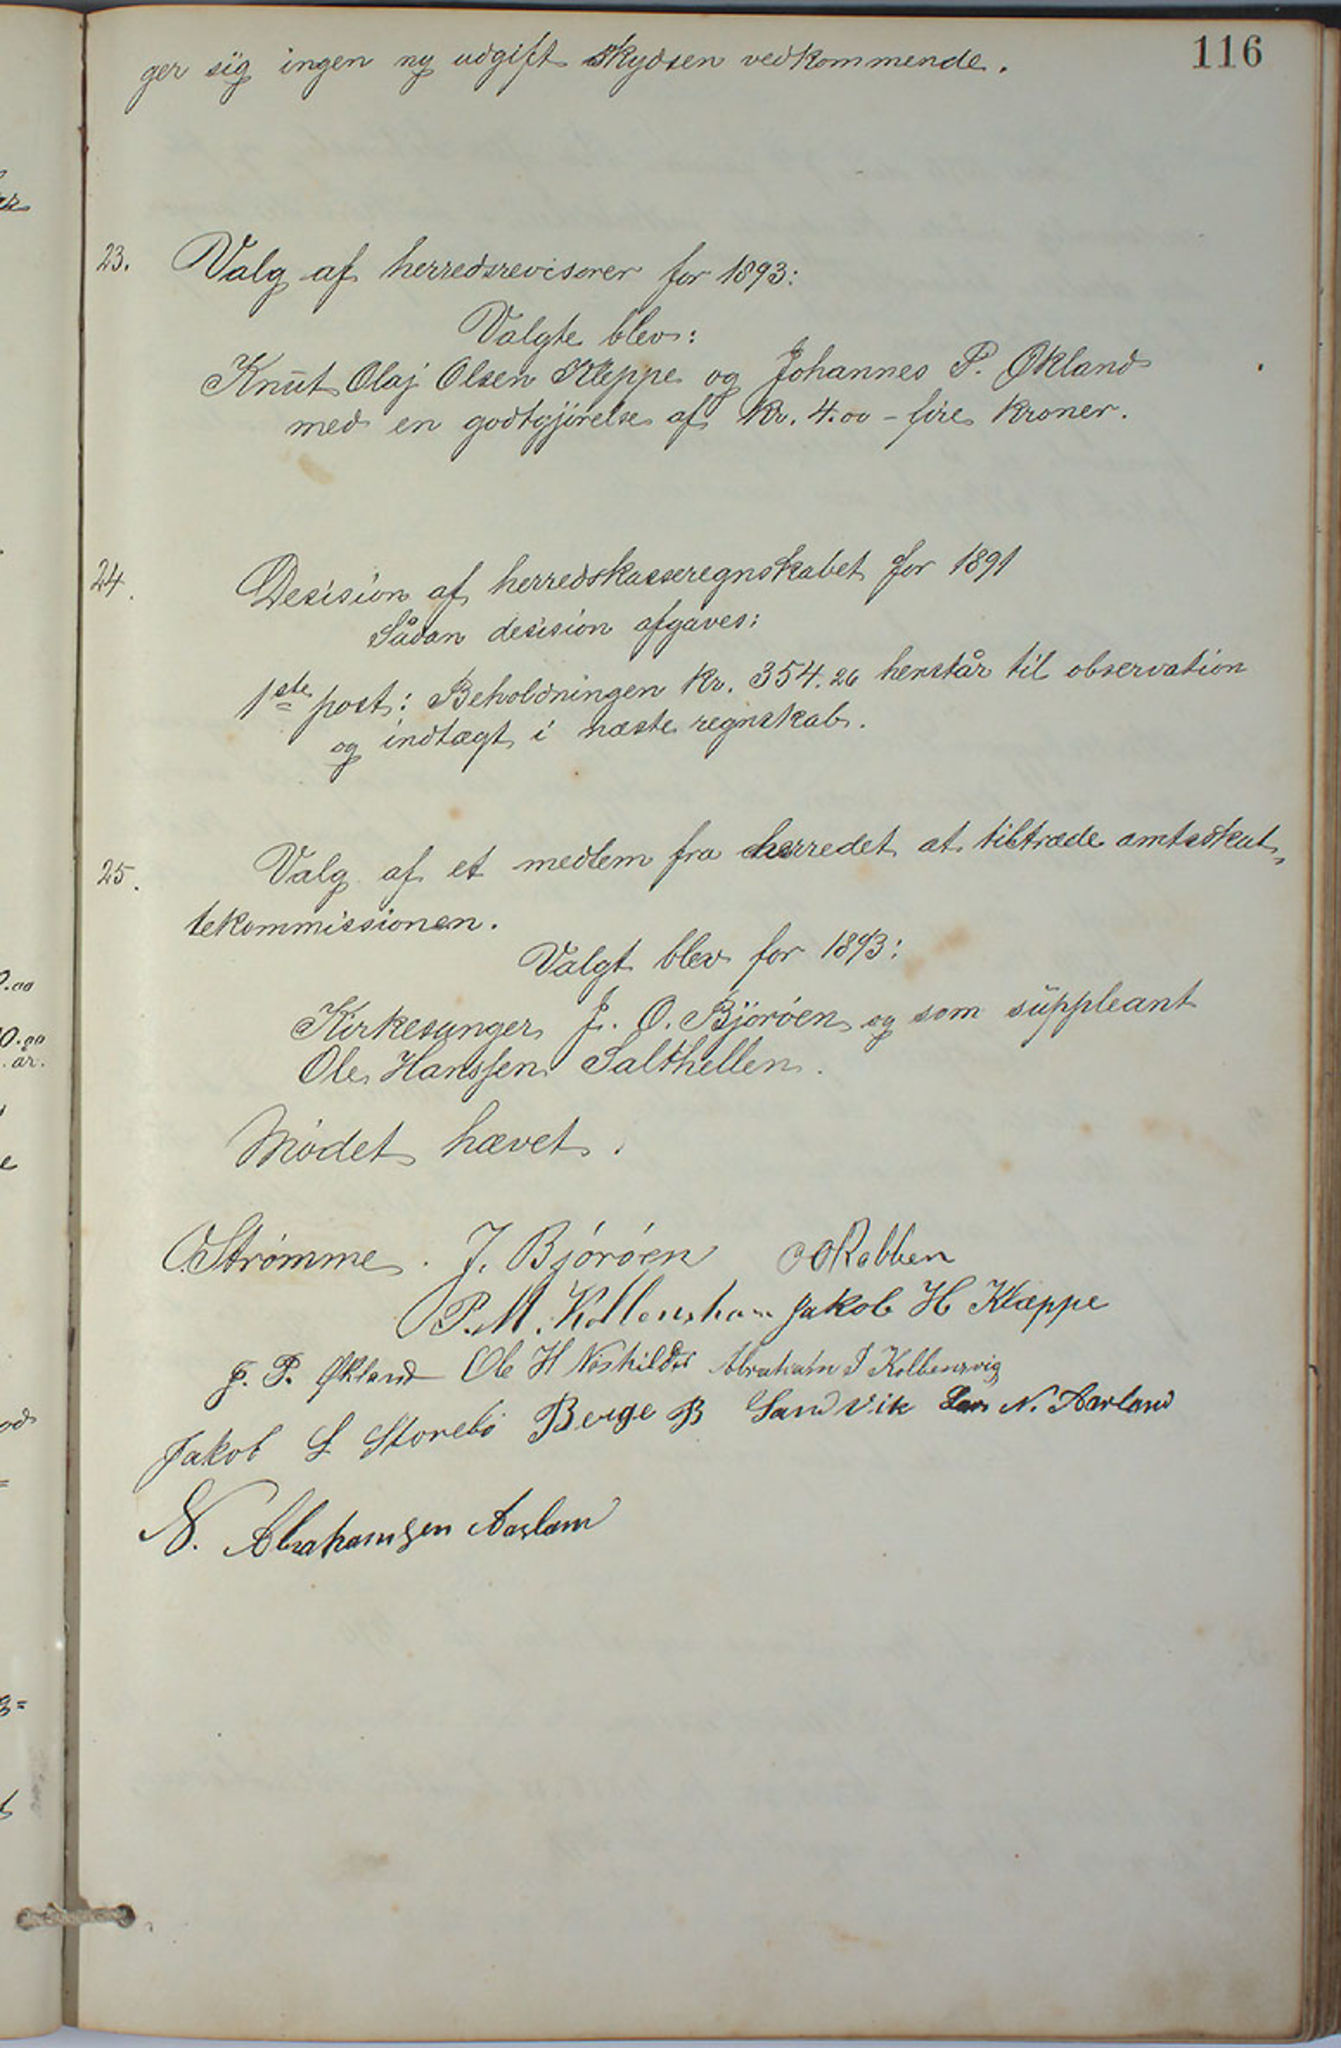 116
ger sig ingen ny udgift skydsen vedkommende.
23. Valg af herredsrevisorer for 1893:
Valgte blev:
Knut Olaj Olsen Kleppe og Johannes P. Økland
med en godtgjörelse af Kr. 4.00 - fire kroner.
24. Desision af herredskasseregnskabet for 1891
Sådan desision afgaves:
1ste post: Beholdningen Kr. 354.26 henstår til observation
og indtægt i næste regnskab.
25. Valg af et medlem fra herredet at tiltræde amtsskat-
tekommissionen.
Valgt blev for 1893:
Kirkesanger J. O. Björöen og som suppleant
Ole Hanssen Salthellen.
Mödet hævet.
O. Strømme. J. Björöen O Rabben
P. M. Jakob H Klæppe
J. P. Økland Ole H Abraham J Kolbensvig
Jakob L Storebö Berge B Sandvik Lars N. Aarland
N. Abrahamsen Aarland